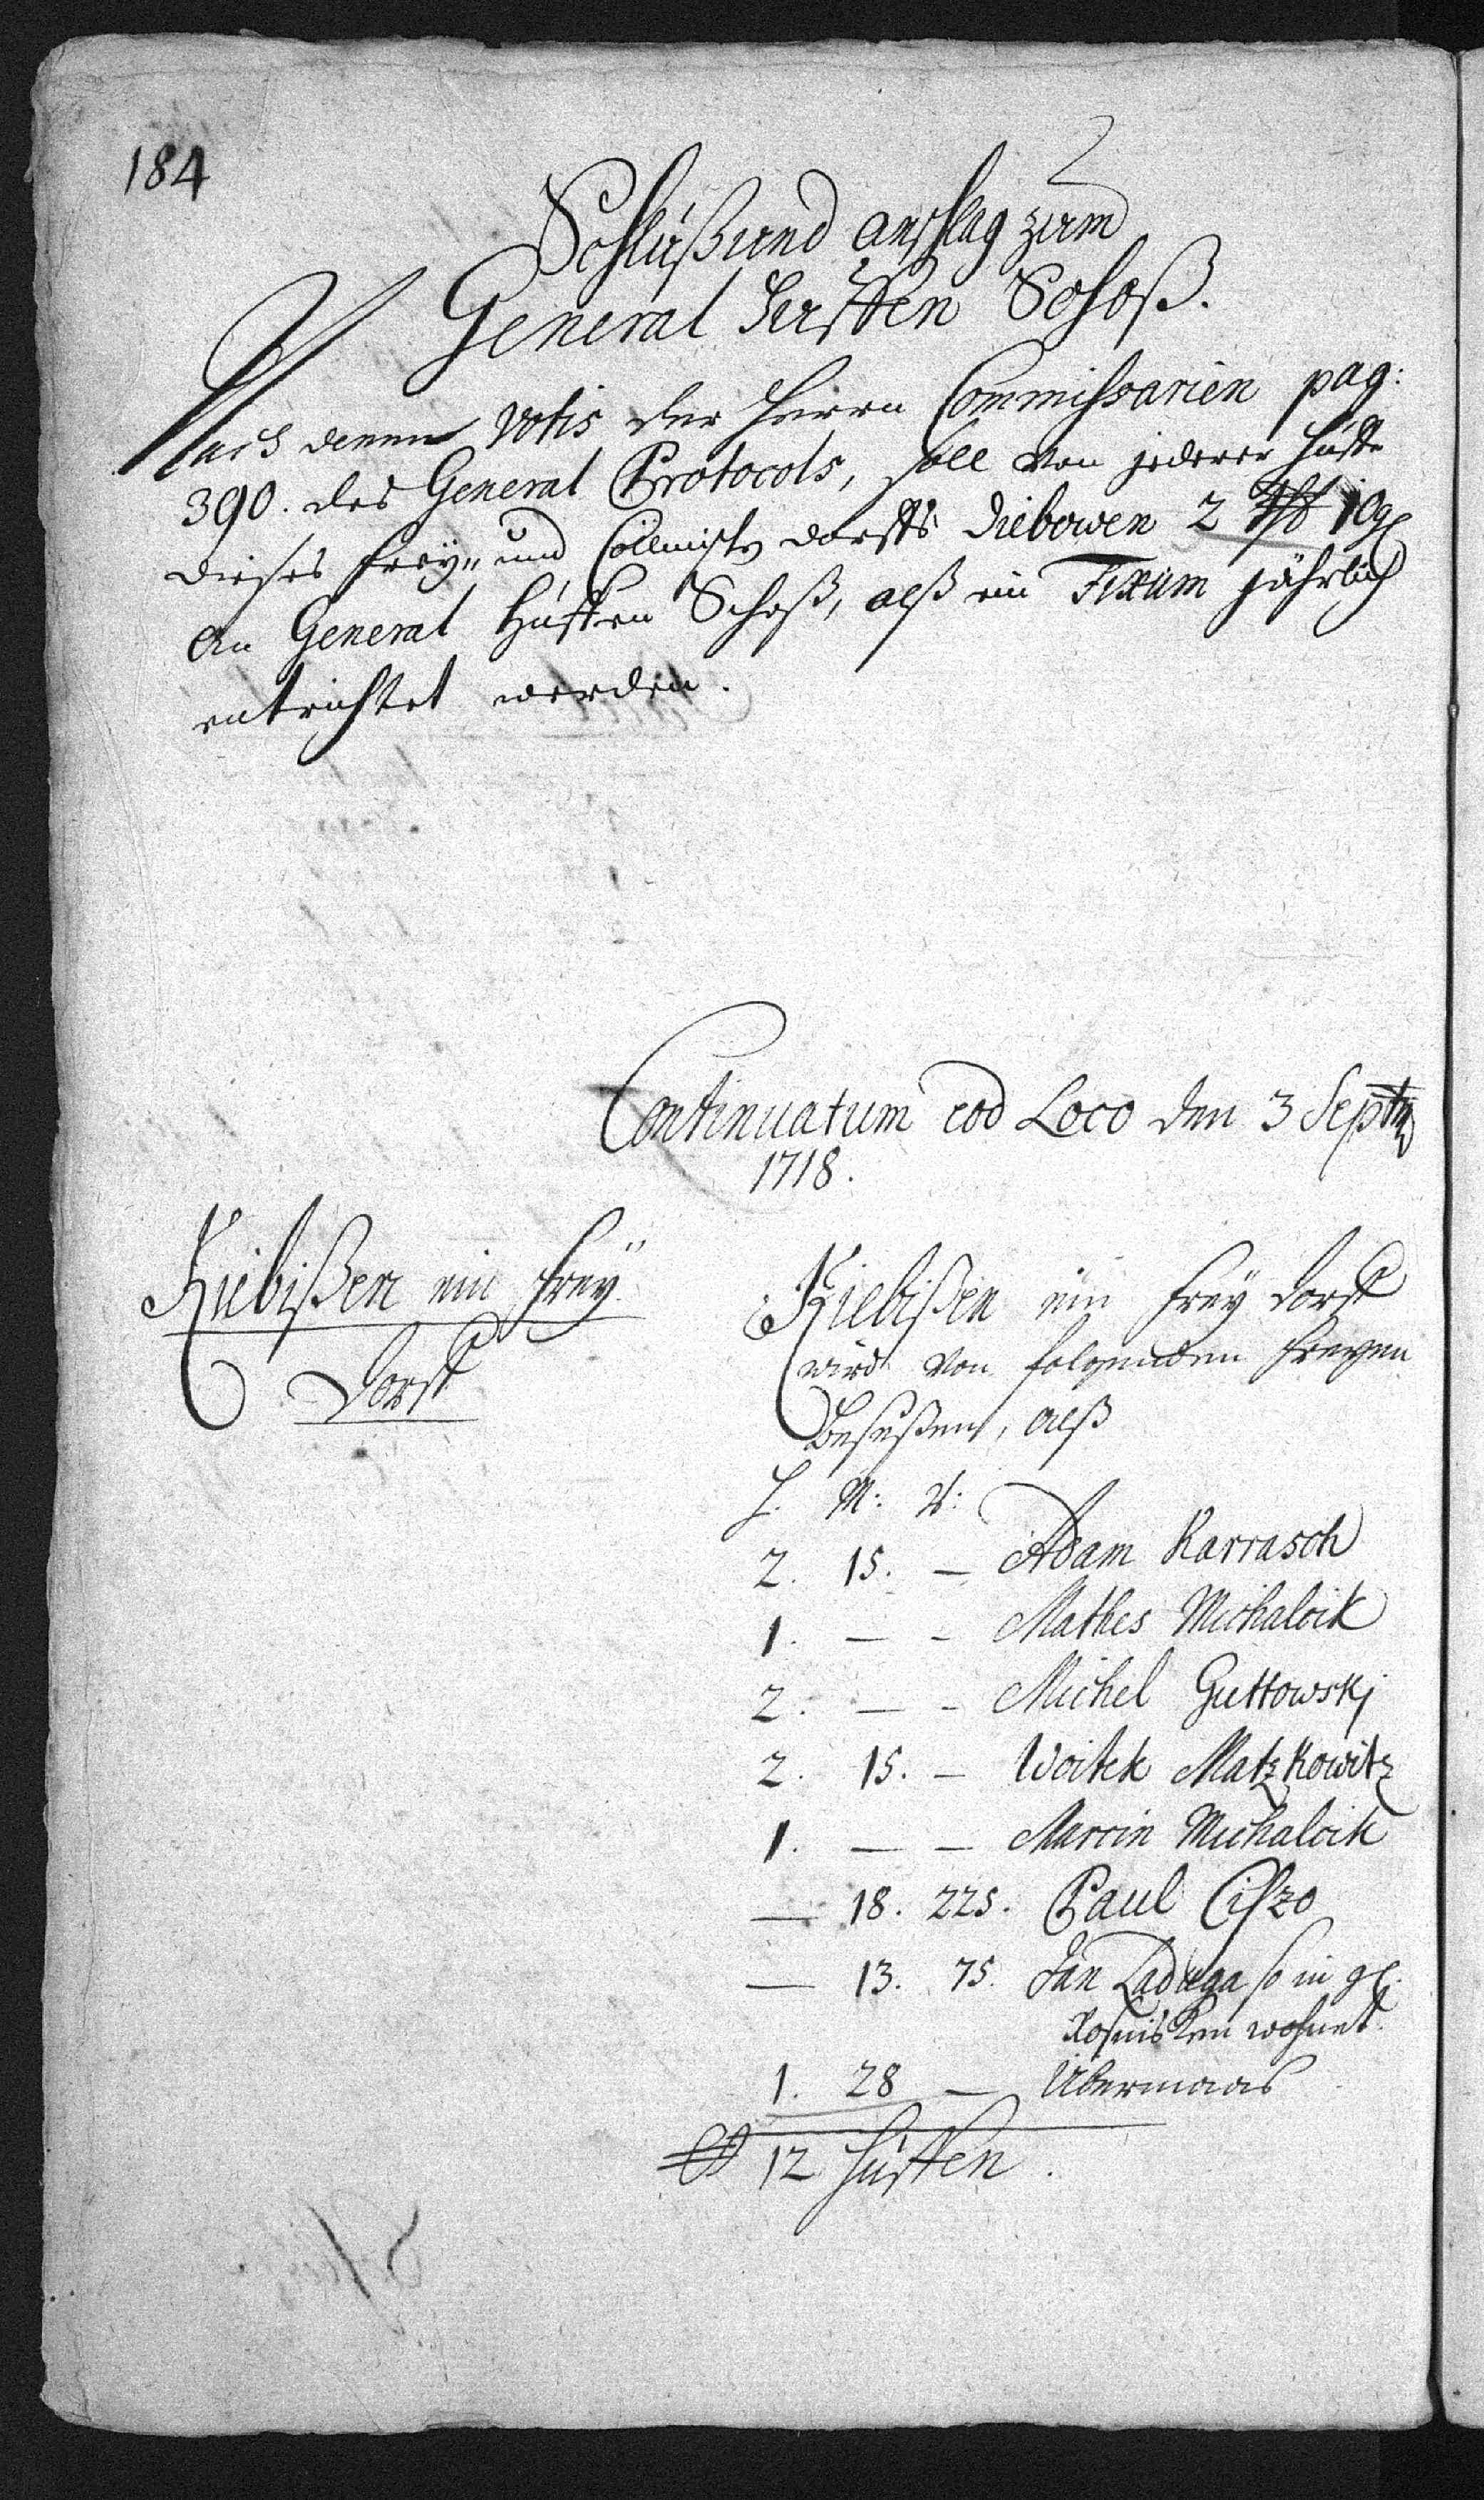 184
Schluß und anschlag zum
General Huffen Schoß.
Nach denen Votis der Herrn Commissarien pag:
390. des General Protocols, soll von jederer Huffe
dieses Frey- und Cöllmisch dorffs Diebowen 2 10 gl
An General Huffen Schoß, alß ein Fixum jährlich
entrichtet werden.
Continuatum eod Loco den 3 Septbr
1718.
Kiebißen ein Frey
Dorff
Kiebißen ein Frey dorff
wird von folgenden Freyen
Beseßen, alß
H. M: R:
2. 15. — Adam Karrasch
1. — — Mathes Michalcik
2. — — Michel Guttowskj
2. 15. — Woitek Matzkowitz
1. — — Marcin Michalcik
— 18. 225. Paul Ciszo
— 13. 75. Jan Laduga so in gl.
wohnet.
1. 28 — Übermaas
12 Huffen.